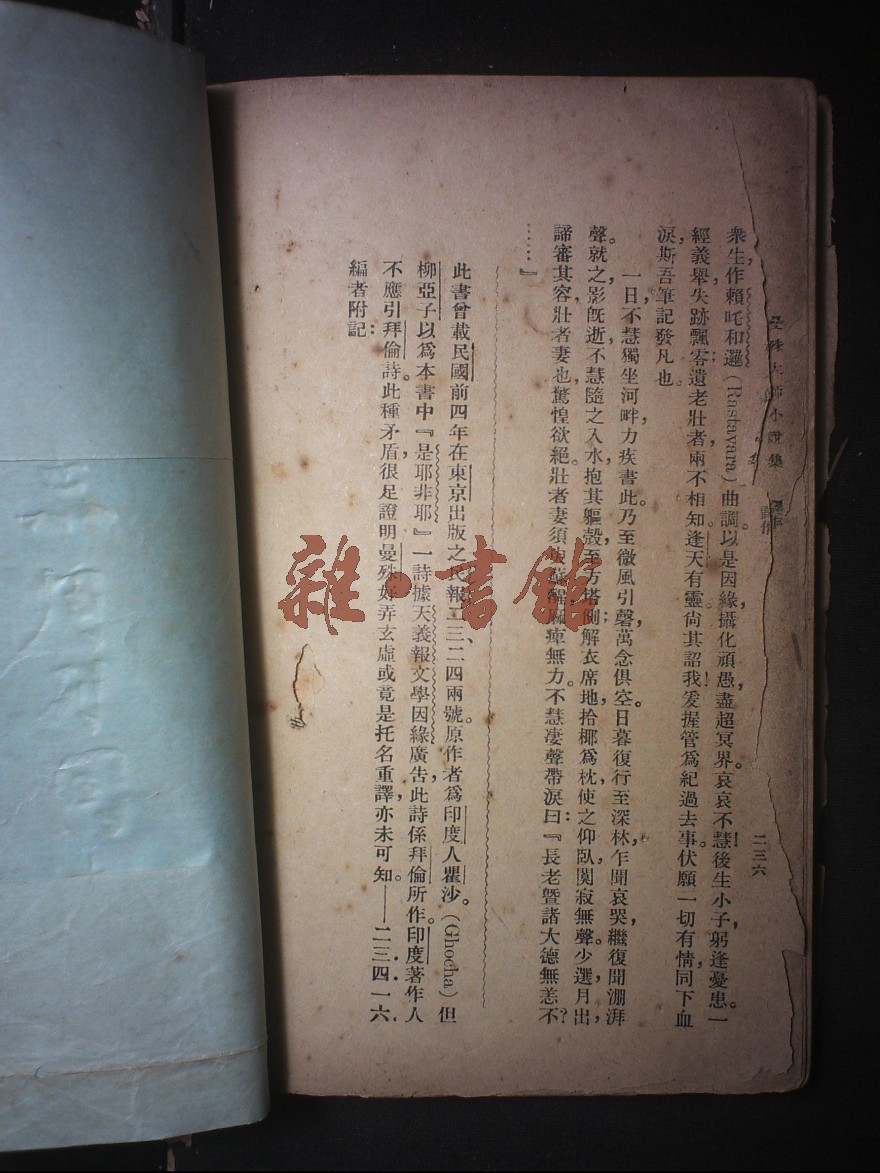 曼殊大師小說集 譯作 二三六
衆生,作賴吒和邏(Rastavara)曲調,以是因緣,攝化頑愚,盡超冥界。哀哀不慧!後生小子,躬逢憂患。一
經義舉,失跡飄零;遺老壯者,兩不相知。逢天有靈,尙其詔我!爰握管爲紀過去事。伏願一切有情,同下血
淚,斯吾筆記發凡也。
一日,不慧獨坐河畔,力疾書此。乃至微風引磬,萬念俱空。日暮復行至深林,乍聞哀哭,繼復聞淜湃
聲。就之,影旣逝,不慧隨之入水,抱其軀殼,至方塔側;解衣席地,拾椰爲枕,使之仰臥,闃寂無聲。少選月出,
諦審其容,壯者妻也,驚惶欲絕。壯者妻須臾蘇醒,羸瘁無力。不慧凄聲帶淚曰:『長老曁諸大德無恙不?
……』
此書曾載民國前四年在東京出版之民報二二、二四兩號。原作者爲印度人瞿沙。(Ghocha)但
柳亞子以爲本書中『是耶非耶』一詩,據天義報文學因緣廣吿,此詩係拜倫所作。印度著作人
不應引拜倫詩。此種矛盾,很足證明曼殊好弄玄虛,或竟是托名重譯,亦未可知。——二三.四.一六.
編者附記:
雜·書館